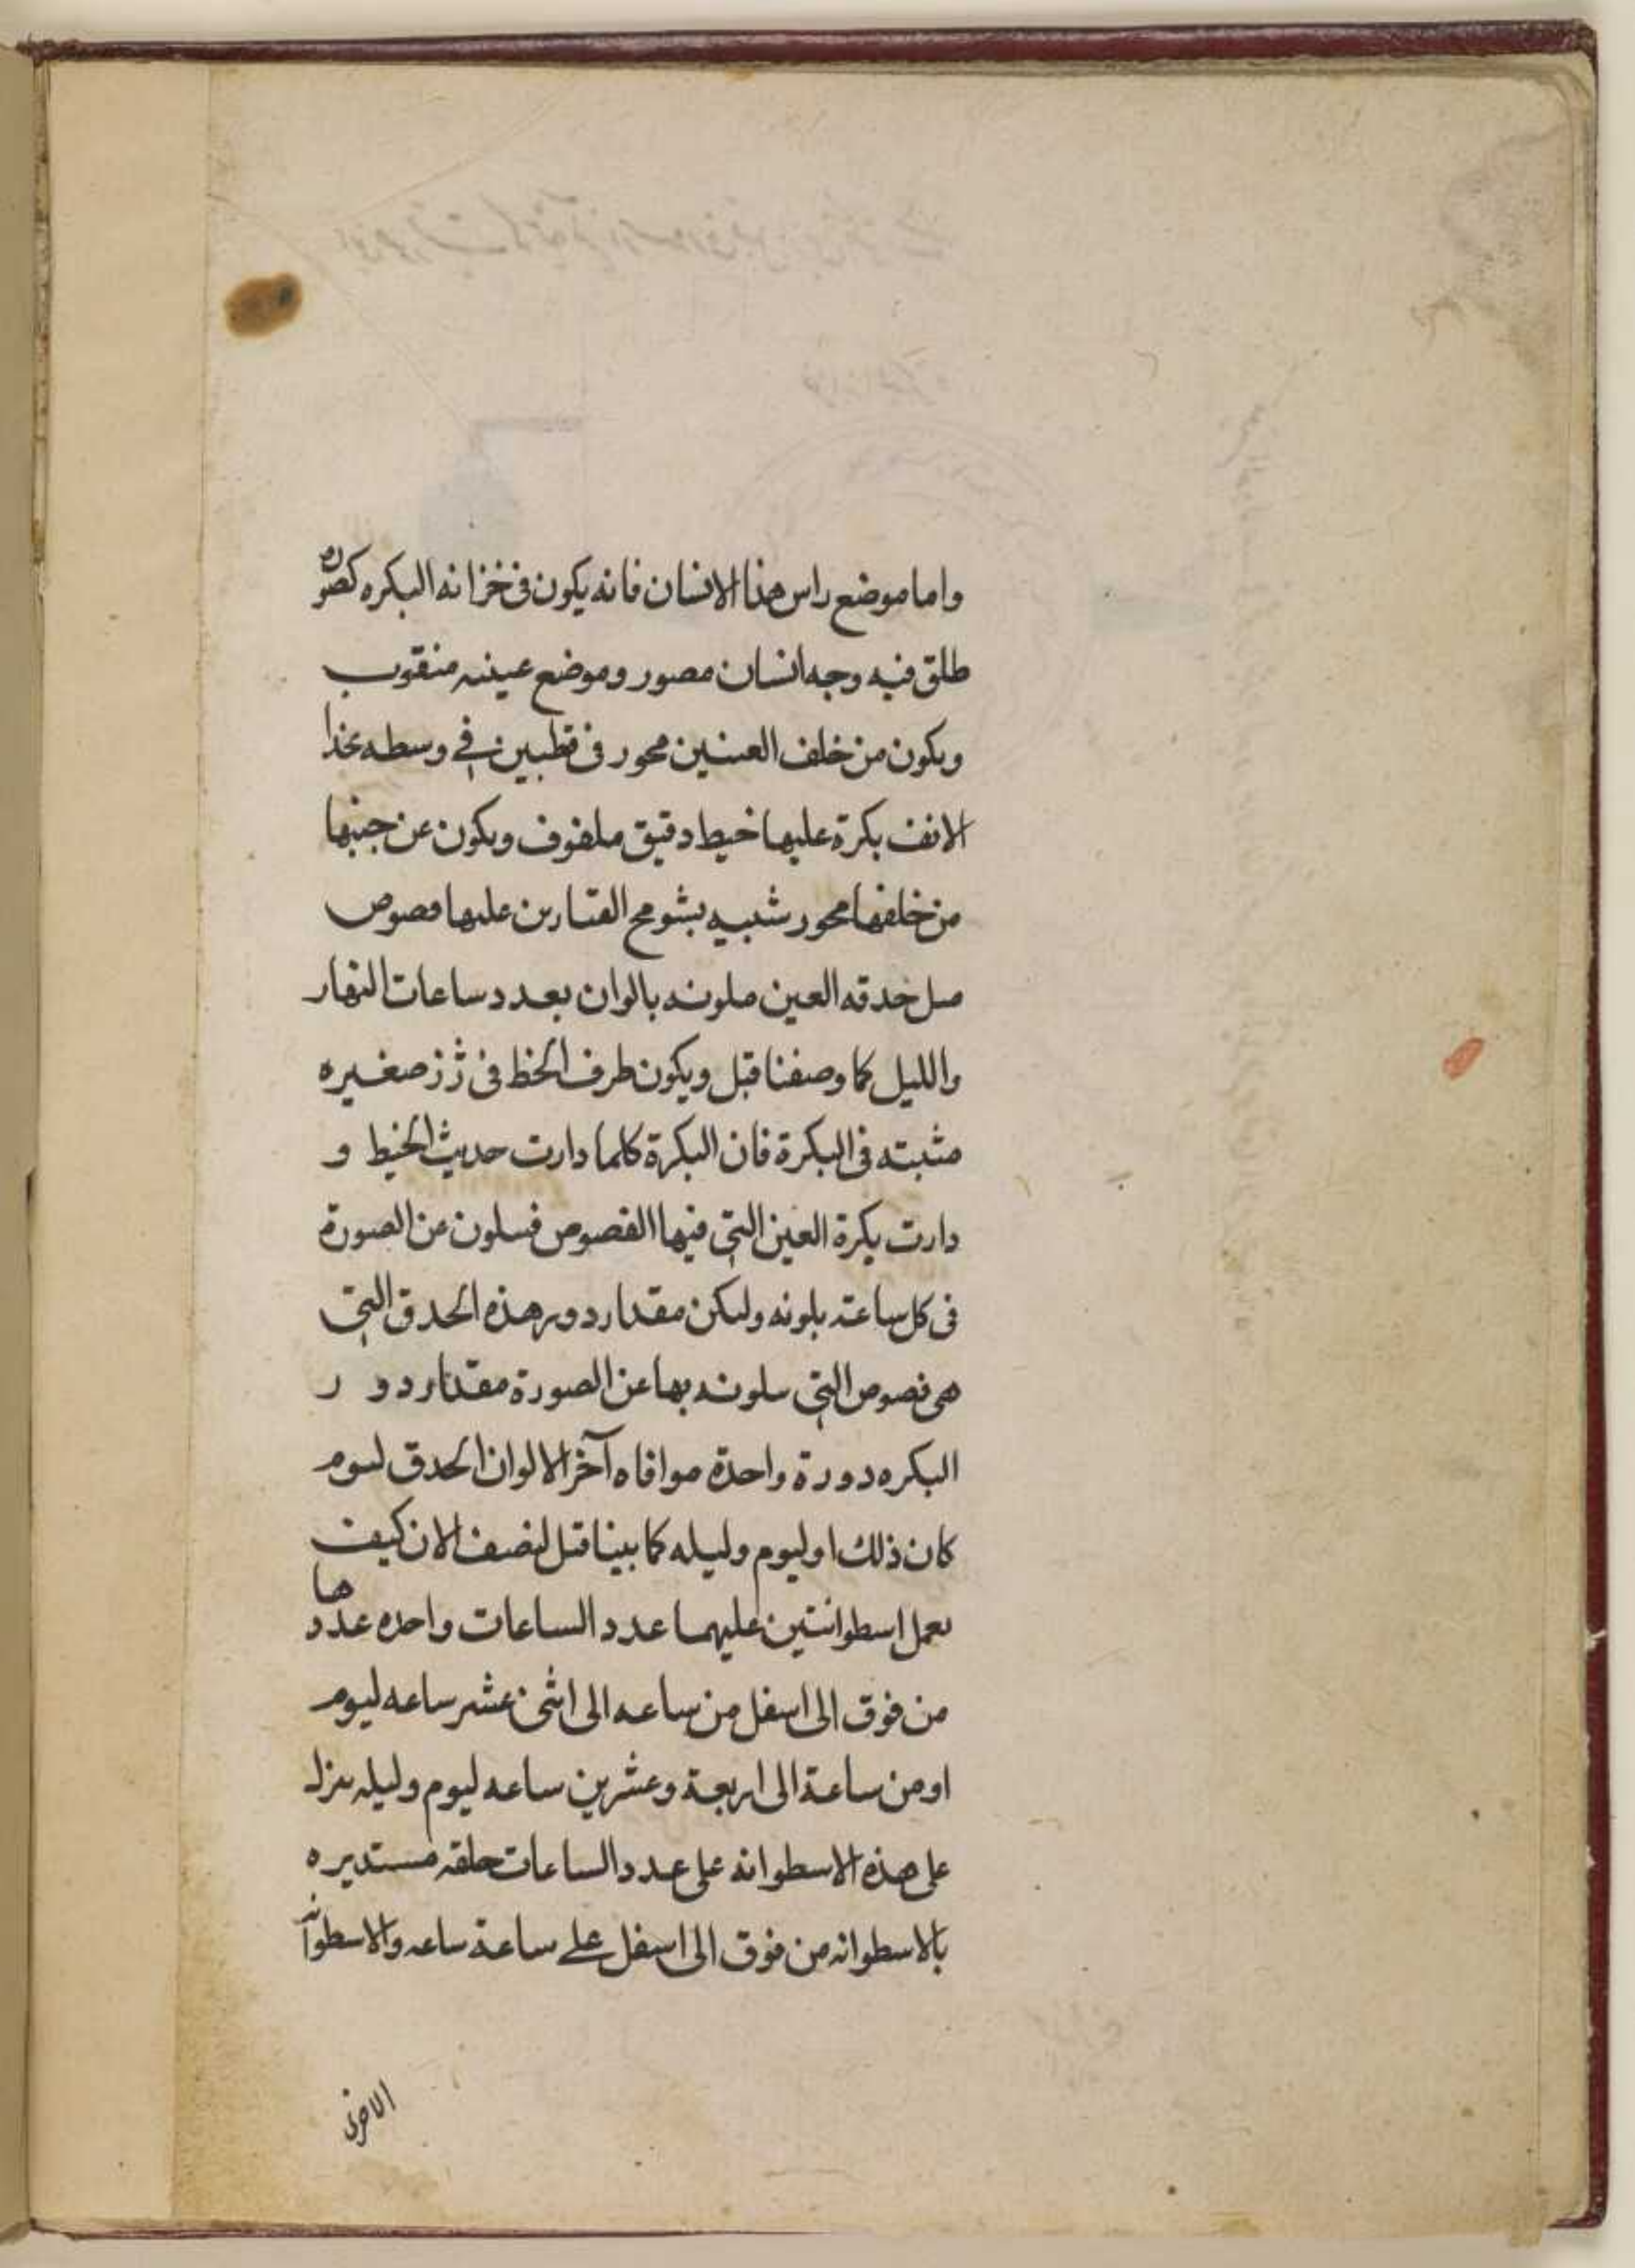 واما موضع راس هذا الانسان فانه يكون فى خزانه البكره كصوره
طلق فيه وجه انسان مصور وموضع عينيه منقوب
ويكون من خلف العينين محور فى قطبين فى وسطه بحذا
الانف بكرة عليها خيط دقيق ملفوف ويكون عن جنبها
من خلفها محور شبيه بشومح القنارين عليها فصوص
مىل حدقه العين ملونه بالوان بعدد ساعات النهار
والليل كما وصفنا قبل ويكون طرف الخط فى رزز صغيره
مثبته فى البكرة فان البكرة كلما دارت حديث الخيط و
دارت بكرة العين التى فيها الفصوص فىلون عن الصورة
فى كل ساعة بلونه وليكن مقدار دور هذه الحدق التى
هى فصوص التى ىىلونه بها عن الصورة مقدار دور
البكره دورة واحدة موافاه آخر الالوان الحدق ليوم
كان ذلك او ليوم وليله كما بينا قبل لنصف الان كيف
ىعمل اسطوانتين عليهما عدد الساعات واحده عددها
من فوق الى اسفل من ساعه الى اثنى عشر ساعه ليوم
او من ساعة الى اربعة وعشرين ساعه ليوم وليله ىنزل
على هذه الاسطوانه على عدد الساعات حلقه مستديره
بالاسطوانه من فوق الى اسفل على ساعة ساعه والاسطوانه
الاخرى